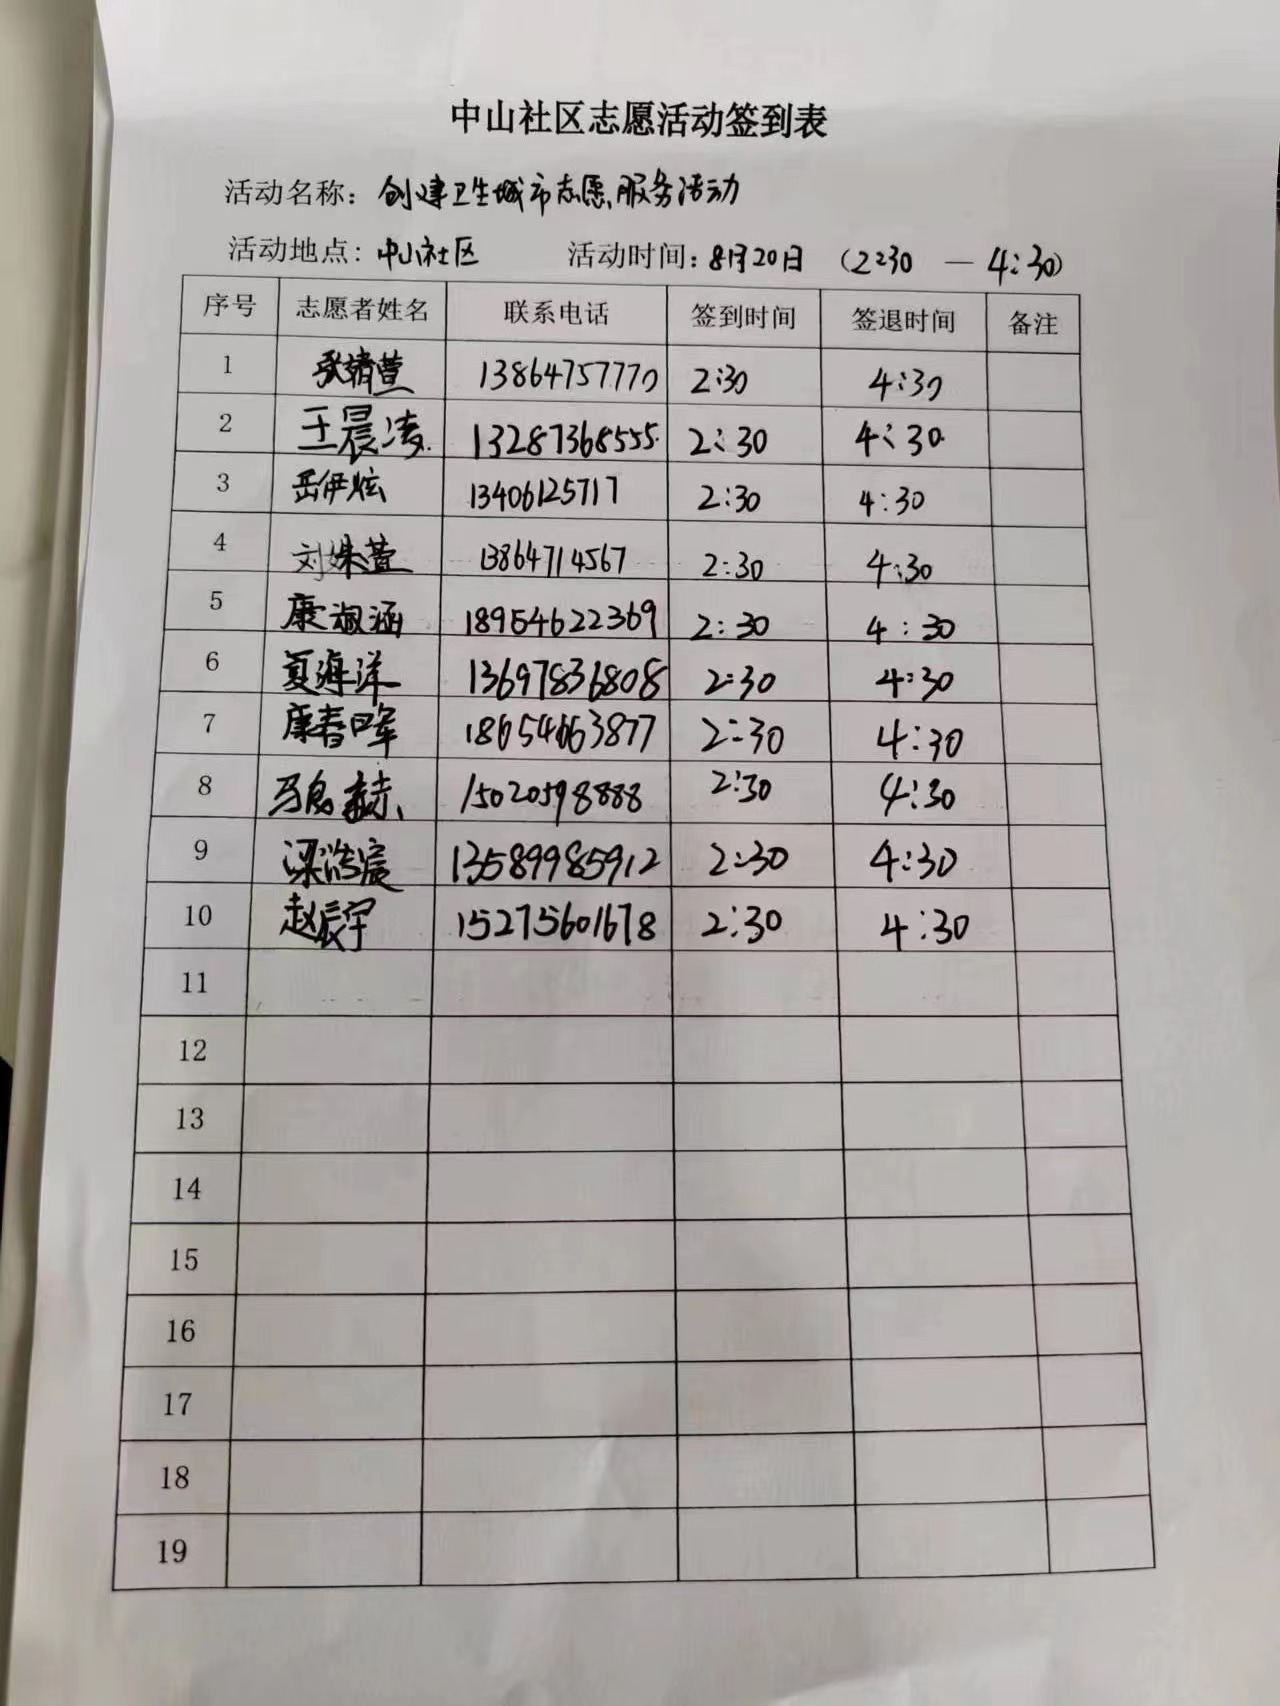 中山社区志愿活动签到表
活动名称：创建卫生城市志愿服务活动
活动地点：中山社区 活动时间：8月20日 （2:30 — 4:30）
序号 志愿者姓名 联系电话 签到时间 签退时间 备注
1 张靖萱 13864757770 2:30 4:30
2 王晨凌 13287368555 2:30 4:30
3 岳伊炫 13406125717 2:30 4:30
4 刘姝萱 13864714567 2:30 4:30
5 康淑涵 18954622369 2:30 4:30
6 夏海洋 13697836808 2:30 4:30
7 康春晖 18654663877 2:30 4:30
8 15020598888 2:30 4:30
9 梁浩宸 13589985912 2:30 4:30
10 赵辰宇 15275601678 2:30 4:30
11
12
13
14
15
16
17
18
19